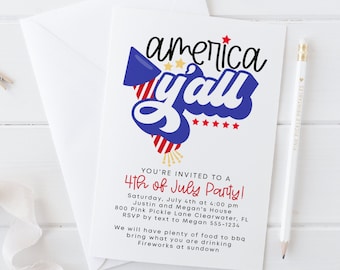 america
y'all
YOU'RE INVITED TO A
4th of July Party!
Saturday, July 4th at 4:00 pm
Justin and Megan's House
800 Pink Pickle Lane Clearwater, FL
RSVP by text to Megan 555-1234
We will have plenty of food to bbq
bring what you are drinking
Fireworks at sundown